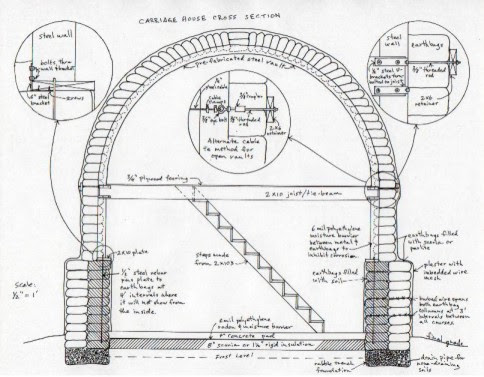 CARRIAGE HOUSE CROSS SECTION
steel wall
bolts thru
wall bracket
steel
bracket
screws
pre-fabricated steel vault
cable
clamp
3/8" eye bolt
threaded
rod
2x6
retainer
Alternate cable
tie method for
open vaults
steel
wall
earthbags
threaded
rod
1/8" steel
brackets thru
bolted to joist
2x6
retainer
3/4" plywood flooring
2x10 joist/tie-beam
steps made
from 2x10s
6 mil polyethylene
moisture barrier
between metal &
earthbags to
inhibit corrosion
earthbags filled
with scoria or
perlite
earthbags filled
with soil
plaster with
imbedded wire
mesh
2x10 plate
1/2" steel rebar
pins plate to
earthbags at
4' intervals where
it will not show
from the
inside
barbed wire spans
both earthbag
columns at 3'
intervals between
all courses
Scale:
1/2" = 1'
6 mil polyethylene
radon & moisture barrier
4" concrete pad
8" scoria or 1 1/2" rigid insulation
frost level
rubble trench
foundation
final grade
drain pipe for
non-draining
soils